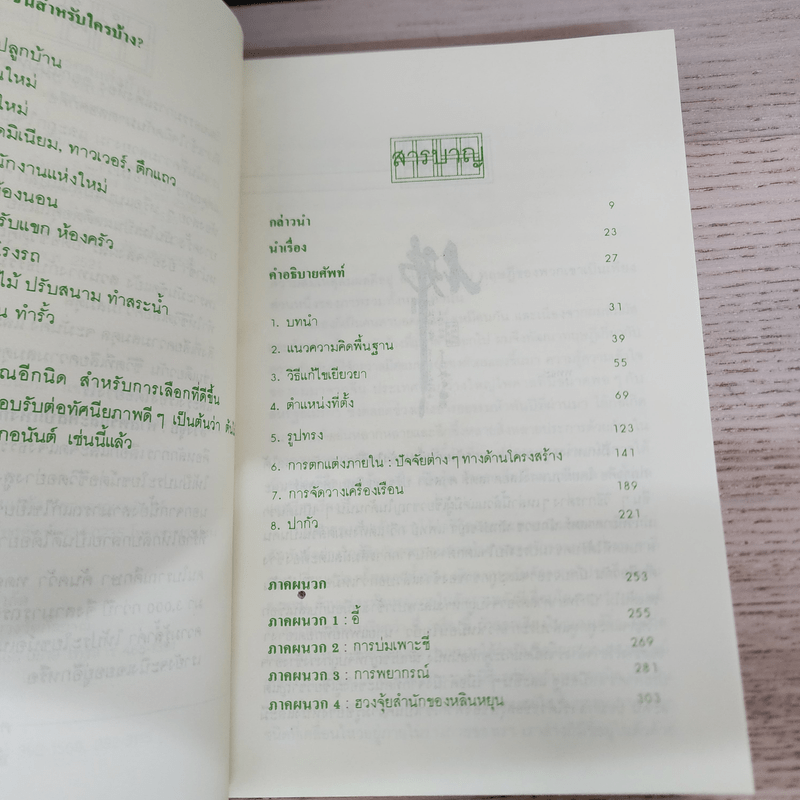 สำหรับใครบ้าง?
ปลูกบ้าน
ใหม่
ใหม่
มิเนียม, ทาวเวอร์, ตึกแถว
นักงานแห่งใหม่
ห้องนอน
รับแขก ห้องครัว
โรงรถ
ไม้ ปรับสนาม ทำสระน้ำ
น ทำรั้ว
ณอีกนิด สำหรับการเลือกที่ดีขึ้น
อบรับต่อทัศนียภาพดีๆ เป็นต้นว่า
กอนันต์ เช่นนี้แล้ว
สารบาญ
กล่าวนำ 9
นำเรื่อง 23
คำอธิบายศัพท์ 27
1. บทนำ 31
2. แนวความคิดพื้นฐาน 39
3. วิธีแก้ไขเยียวยา 55
4. ตำแหน่งที่ตั้ง 69
5. รูปทรง 123
6. การตกแต่งภายใน : ปัจจัยต่างๆ ทางด้านโครงสร้าง 141
7. การจัดวางเครื่องเรือน 189
8. ปากัว 221
ภาคผนวก 253
ภาคผนวก 1 : อี้ 255
ภาคผนวก 2 : การบ่มเพาะชี่ 269
ภาคผนวก 3 : การพยากรณ์ 281
ภาคผนวก 4 : ฮวงจุ้ยสำนักของหลินหยุน 303